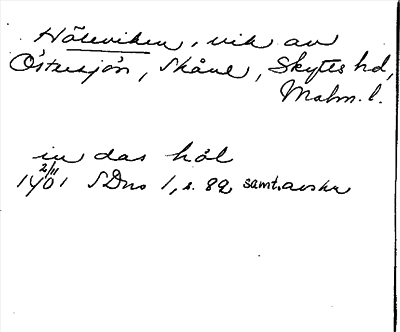 Höleviken, vik av
Östersjön, Skåne, Skytts hd,
Malm. l.
in das hål
2/11
1401 SDns 1, s. 82, samt. avskr